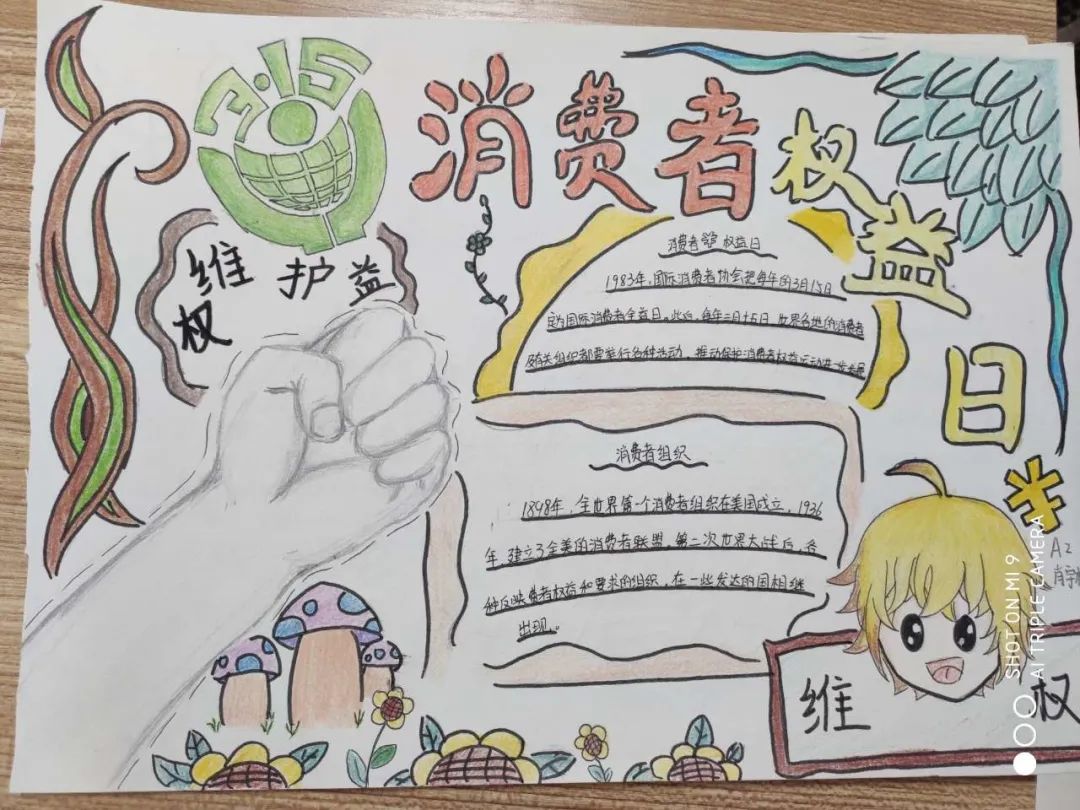 3·15
消费者权益日
维护益
权
消费者权益日
1983年,国际消费者协会把每年的3月15日
定为国际消费者权益日。此后,每年三月十五日,世界各地的消费者
及有关组织都要举行各种活动,推动保护消费者权益运动进一步发展
消费者组织
1898年,全世界第一个消费者组织在美国成立,1936
年,建立了全美的消费者联盟,第二次世界大战后,各
种反映费者权益和要求的组织,在一些发达的国相继
出现。
维权
A2
肖宇
SHOT ON MI 9
AI TRIPLE CAMERA